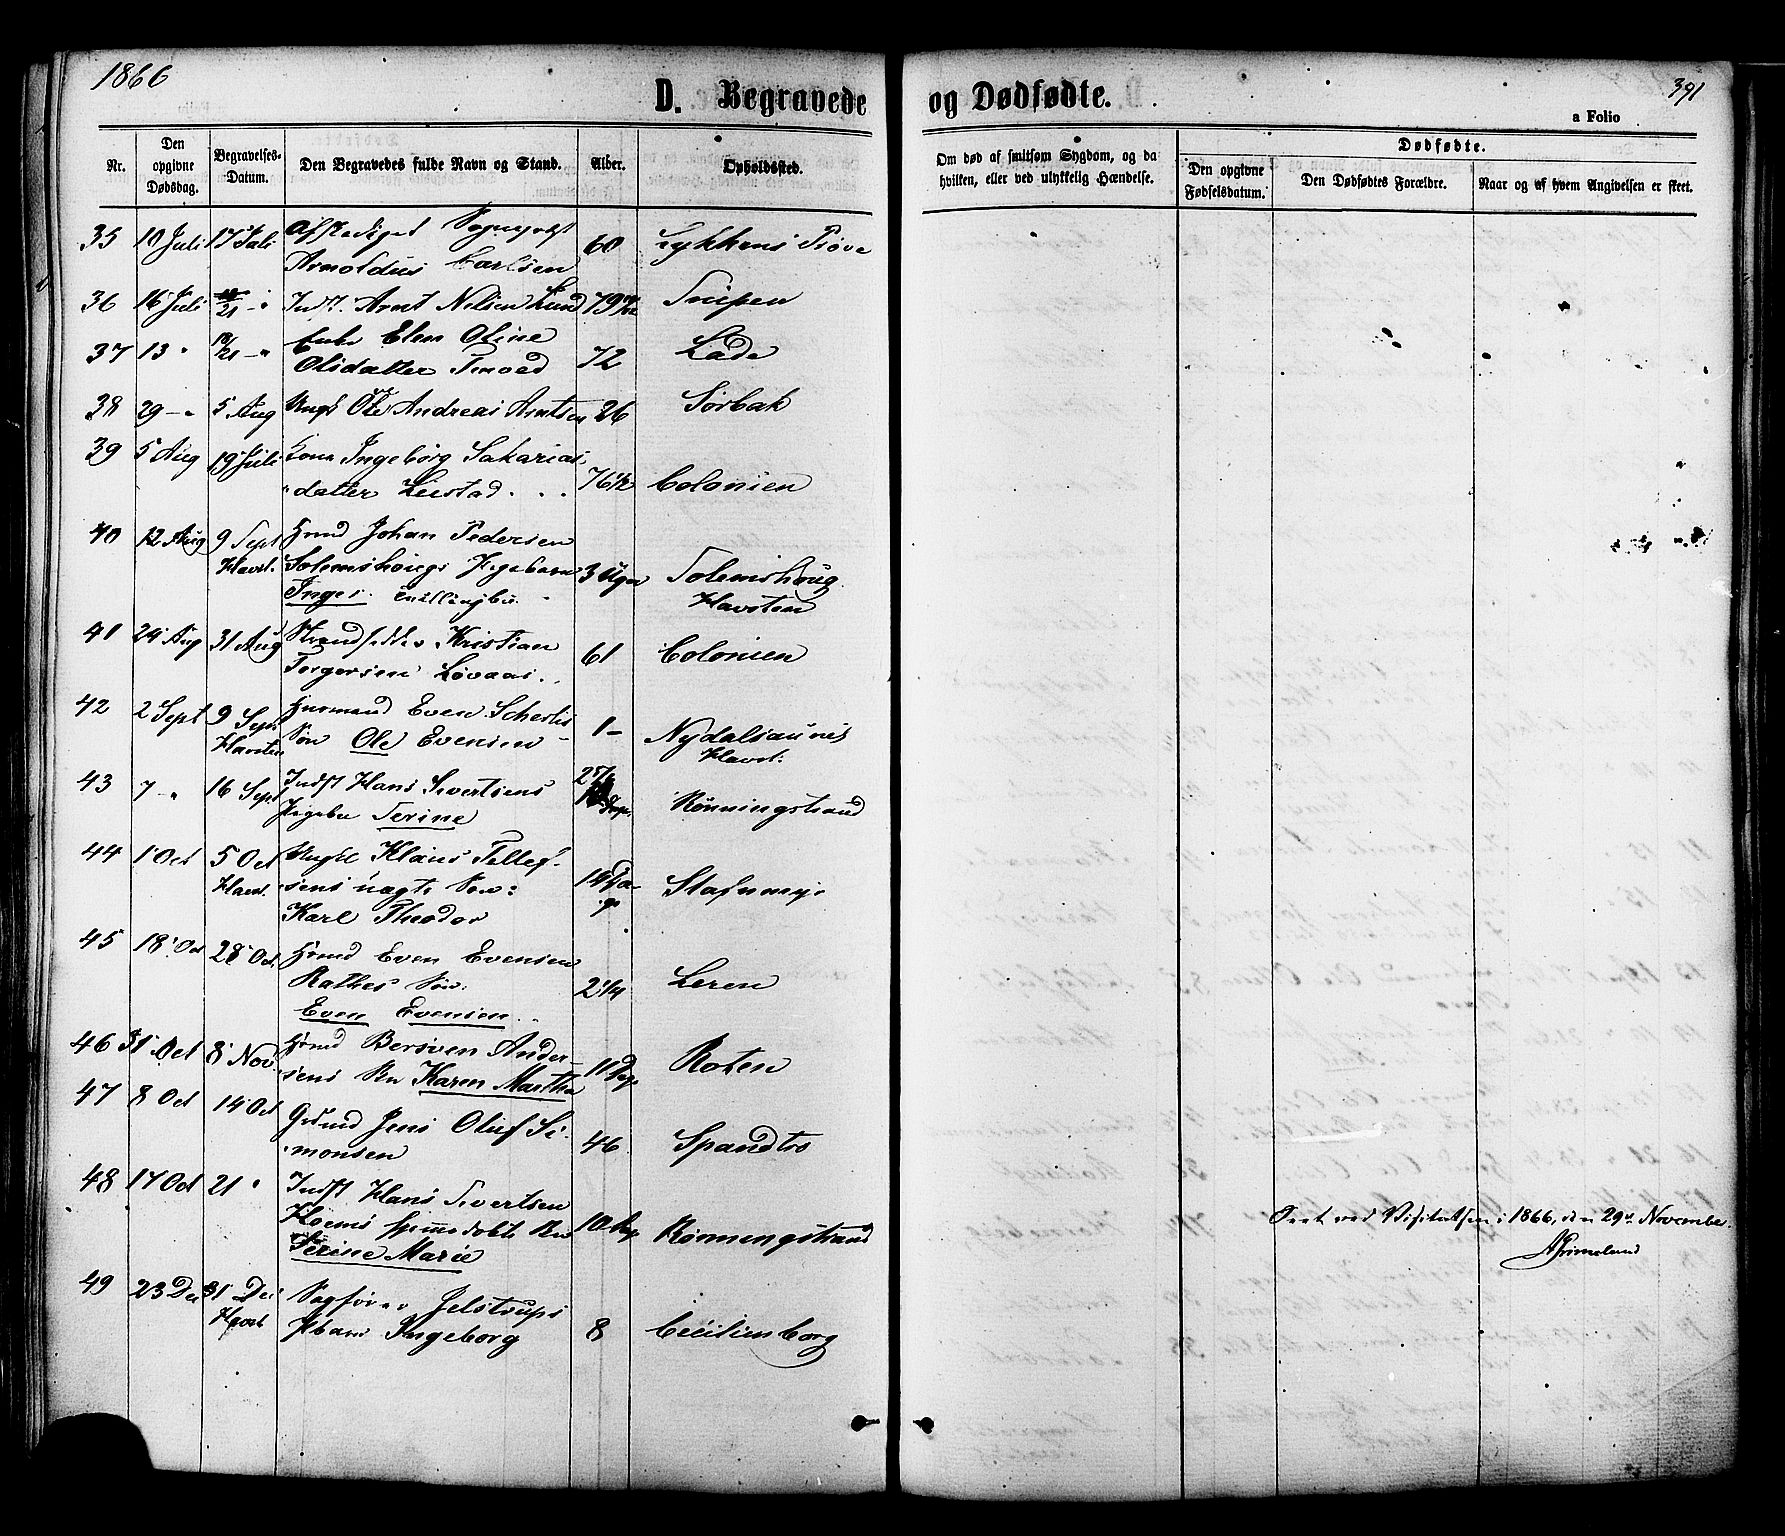 1866
D. Begravede og Dødfødte.
391
a Folio
Nr.
Den opgivne Dødsdag.
Begravelses-Datum.
Den Begravedes fulde Navn og Stand.
Alder.
Opholdssted.
Om død af smitsom Sygdom, og da hvilken, eller ved ulykkelig Hændelse.
Dødfødte.
Den opgivne Fødselsdatum.
Den Dødfødtes Forældre.
Naar og af hvem Angivelsen er skeet.
35 10 Juli 17 Juli Afskediget
Arnoldus Carlsen 60 Lykkens Prøve
36 16 Juli 21 - " Indst. Arnt Nilsen Lund 79
37 13 " 21 - " Enke Elen Oline
Olsdatter 72 Lade
38 29 - " 5 Aug Ungk Ole Andreas Arntsen 26 Sørbak
39 5 Aug 19 Juli Kone Ingeborg Sakarias
datter Leistad 76 1/2 Colonien
40 12 Aug 9 Sept Hmd Johan Pedersen
Havst. Solemshougs Pigebarn 3 Uger Solemshoug
Inger. Havsten
41 24 Aug 31 Aug Kristian
Torgersen Løvaas 61 Colonien
42 2 Sept 9 Sept Husmand Even
Havsten Søn Ole Evensen 1 - Nydalsaunet
Havst.
43 7 - " 16 Sept Indst Hans Sivertsens
Pigebn Serine Rønningstrand
44 1 Oct 5 Oct Ungk Klaus Tellef-
Havst. sens uægte Søn: 14 Da-
Karl Theodor ge
45 18 Oct 28 Oct. Hmd Even Evensen
Rathes Søn 2 1/4 Leren
Even Evensen
46 31 Oct 8 Nov. Hmd Bersven Ander-
sens Bn Karen Martha 11 Dage Roten
47 8 Oct 14 Oct Grdmd Jens Oluf Si-
monsen 46 Spandtro
48 17 Oct 21 " Indst Hans Sivertsen
Hoems hjemmedøbte Bn 10 Dage Rønningstrand
Serine Marie
Seet ved Visitatsen i 1866, den 29de November
AGrimelund
49 23 Dec 31 Dec Sagfører Jelstrups
Havst Pbarn Ingeborg 8 Cecilienborg